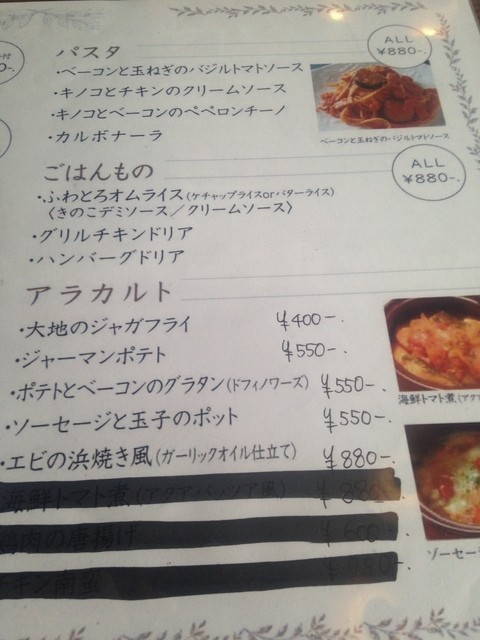 パスタ
ALL
¥880-.
・ベーコンと玉ねぎのバジルトマトソース
・キノコとチキンのクリームソース
・キノコとベーコンのペペロンチーノ
・カルボナーラ
ベーコンと玉ねぎのバジルトマトソース
ごはんもの
ALL
¥880-.
・ふわとろオムライス(ケチャップライスorバターライス)
〈きのこデミソース／クリームソース〉
・グリルチキンドリア
・ハンバーグドリア
アラカルト
・大地のジャガフライ ¥400-.
・ジャーマンポテト ¥550-.
・ポテトとベーコンのグラタン(ドフィノワーズ) ¥550-.
・ソーセージと玉子のポット ¥550-.
・エビの浜焼き風(ガーリックオイル仕立て) ¥880-.
海鮮トマト煮(アクアパッツア風) ¥880-.
鶏肉の唐揚げ ¥600-.
チキン南蛮
海鮮トマト煮(アクア
ソーセー